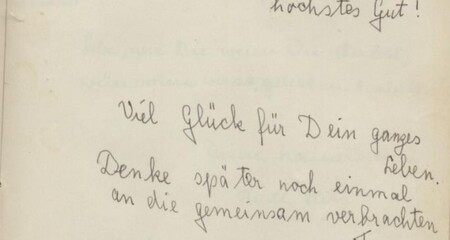 höchstes Gut!
Viel Glück für Dein ganzes
Leben.
Denke später noch einmal
an die gemeinsam verbrachten